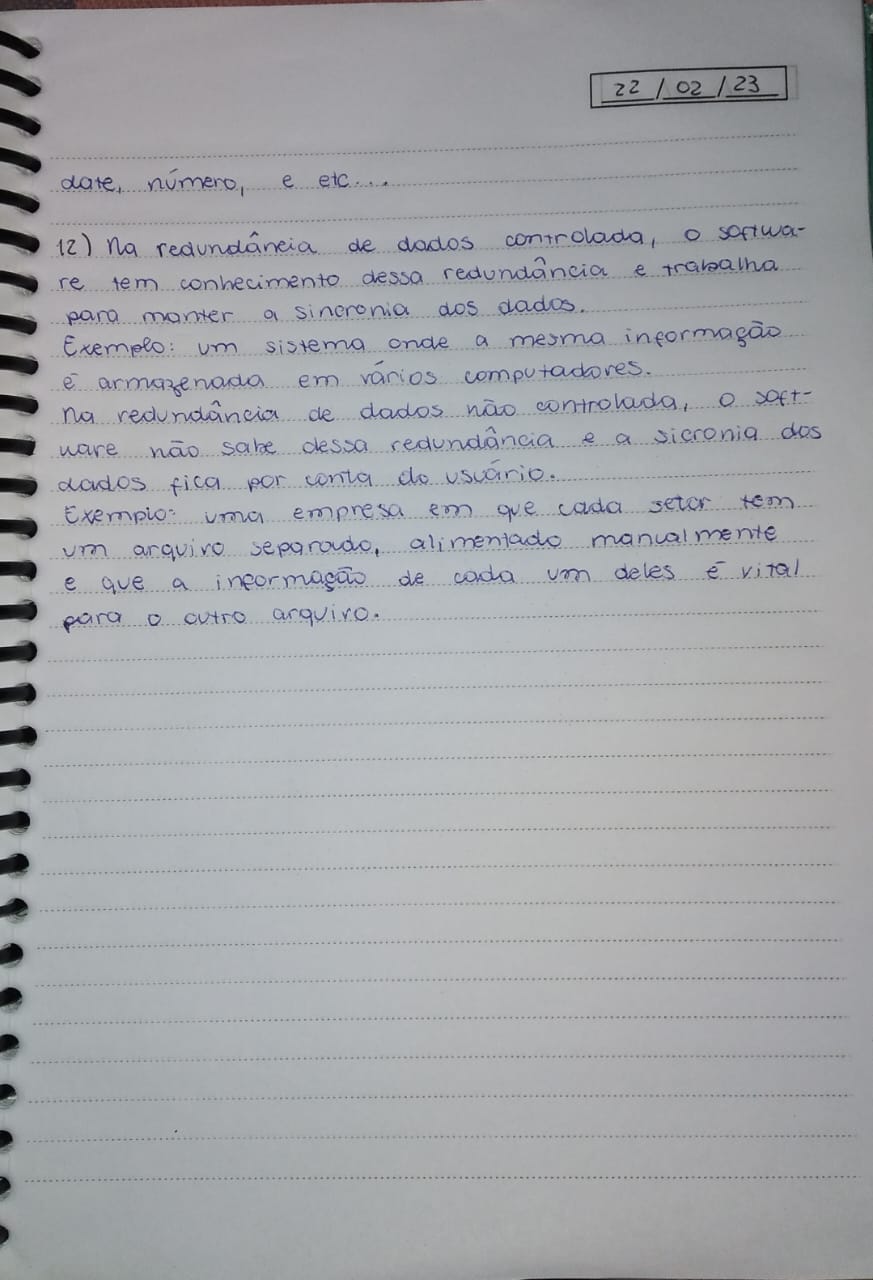 22/02/23
date, número, e etc...
12) Na redundância de dados controlada, o softwa-
re tem conhecimento dessa redundância e trabalha
para manter a sincronia dos dados.
Exemplo: um sistema onde a mesma informação
é armazenada em vários computadores.
Na redundância de dados não controlada, o soft-
ware não sabe dessa redundância e a sicronia dos
dados fica por conta do usuário.
Exemplo: uma empresa em que cada setor tem
um arquivo separado, alimentado manualmente
e que a informação de cada um deles é vital
para o outro arquivo.